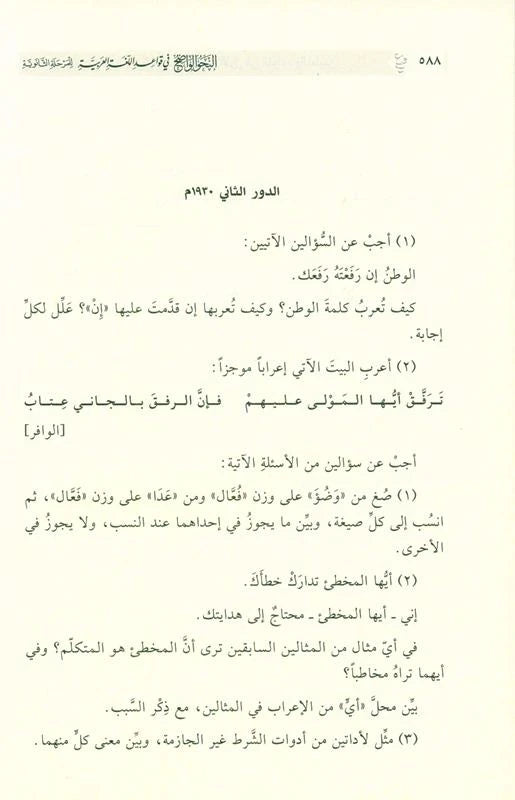 ٥٨٨ النحو الواضح في قواعد اللغة العربية للمرحلة الثانوية
الدور الثاني ١٩٣٠م
(١) أجبْ عن السُّؤالين الآتيين:
الوطنُ إن رَفَعْتَهُ رَفَعَك.
كيف تُعربُ كلمةَ الوطن؟ وكيف تُعربها إن قدَّمتَ عليها «إِنْ»؟ علِّل لكلِّ
إجابة.
(٢) أعربِ البيتَ الآتي إعراباً موجزاً:
تَرَفَّقْ أيُّها المَوْلى عليهمْ فإنَّ الرفقَ بالجاني عِتابُ
[الوافر]
أجبْ عن سؤالين من الأسئلةِ الآتية:
(١) صُغ من «وَضُؤَ» على وزن «فُعَّال» ومن «عَدَا» على وزن «فَعَّال»، ثم
انسُب إلى كلِّ صيغة، وبيِّن ما يجوزُ في إحداهما عند النسب، ولا يجوزُ في
الأخرى.
(٢) أيُّها المخطئ تداركْ خطأَكَ.
إني ـ أيها المخطئ ـ محتاجٌ إلى هدايتك.
في أيّ مثال من المثالين السابقين ترى أنَّ المخطئ هو المتكلّم؟ وفي
أيهما تراهُ مخاطباً؟
بيِّن محلَّ «أيٍّ» من الإعراب في المثالين، مع ذِكْر السَّبب.
(٣) مثِّل لأداتين من أدوات الشَّرط غير الجازمة، وبيِّن معنى كلٍّ منهما.